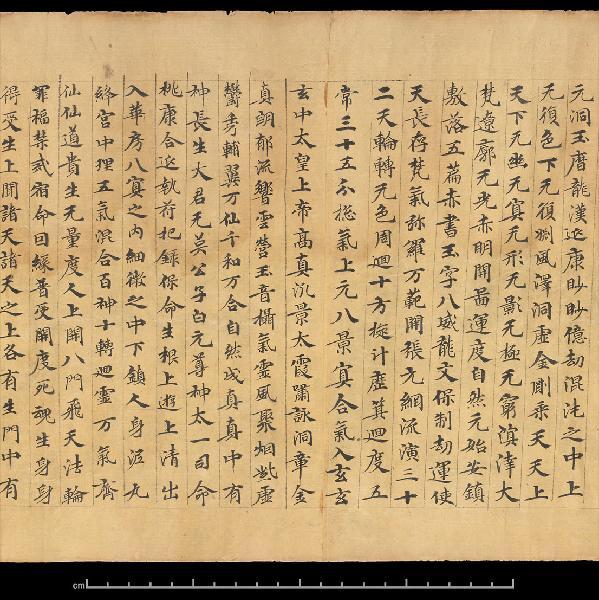 元洞玉曆龍漢延康眇眇億劫混沌之中上
无復色下无復渕風澤洞虛金剛乘天天上
天下无坐无冥无形无影无極无窮溟涬大
梵遼廓无光赤明開啚運度自然元始安鎮
敷落五萹赤書玉字八威龍文保制劫運使
天長存梵氣弥羅万範開張元綱流演三十
二天輪轉无色周迴十方旋計虛箕迴度五
常三十五分捴氣上元八景冥合氣入玄玄
玄中太皇上帝高真汎景太霞嘯詠洞章金
真朗郁流響雲營玉音攝氣靈風聚烟紫虛
鬱秀輔翼万仙千和万合自然成真真中有
神長生大君无莫公子白元尊神太一司命
桃康合延執苻把籙保命生根上遊上清出
入華房八寘之內細微之中下鎮人身泥丸
絳宮中理五氣混合百神十轉迴靈万氣齊
仙仙道貴生无量度人上開八門飛天法輪
罪福禁戒宿命因緣普受開度死魂生身身
得受生上聞諸天諸天之上各有生門中有
cm